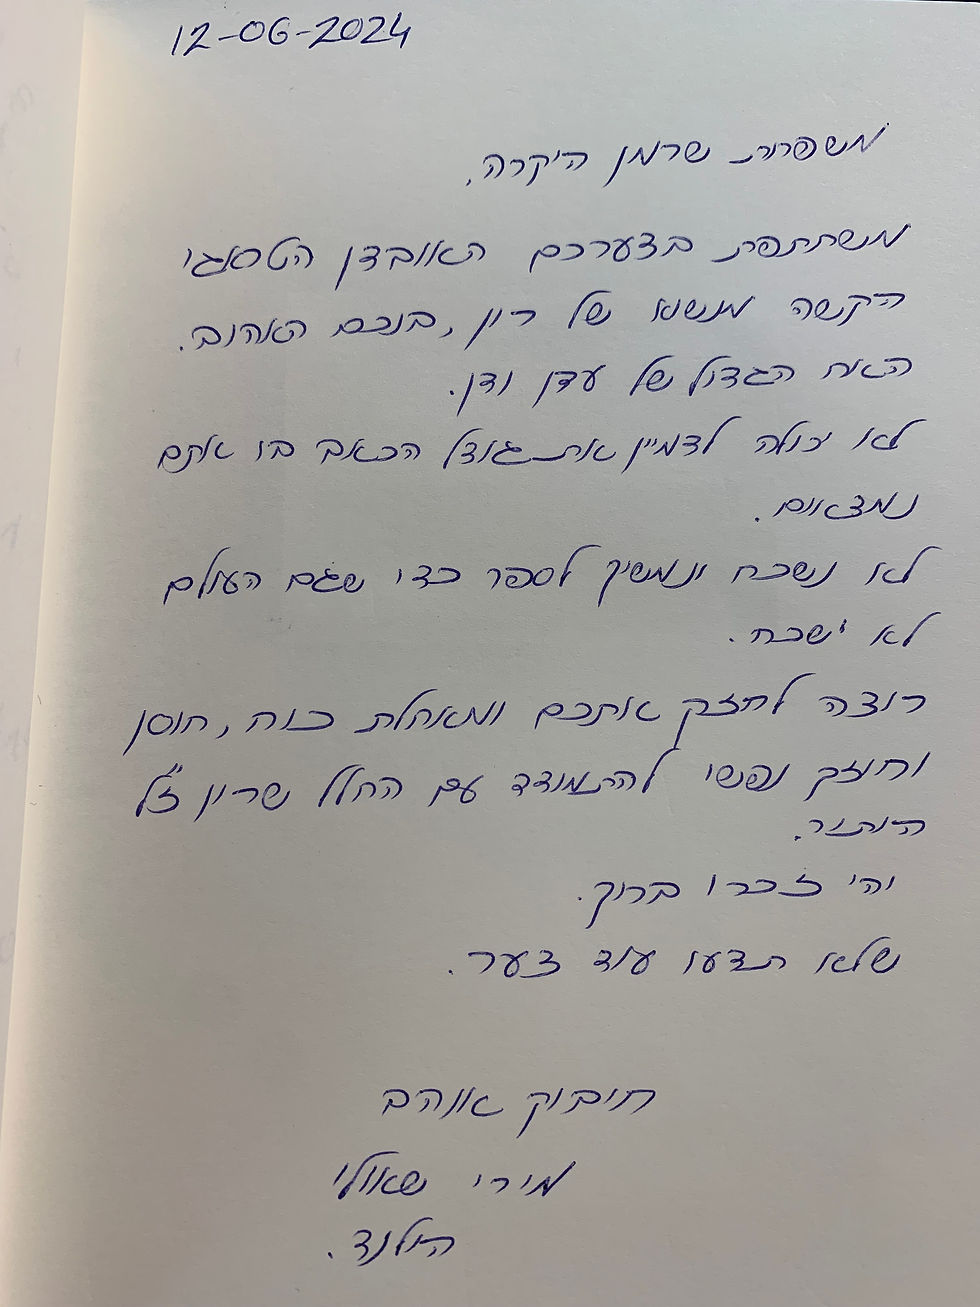 12-06-2024
משפחת שרמן היקרה,
משתתפת בצערכם האובדן הטראגי
הקשה מנשוא של רון, בנכם האהוב.
האח הגדול של עדן ודן.
לא יכולה לדמיין את גודל הכאב בו אתם
נמצאים.
לא נשכח ונמשיך לספר כדי שגם העולם
לא ישכח.
רוצה לחזק אתכם ומאחלת כוח, חוסן
וחוזק נפשי להתמודד עם החלל שרון ז"ל
הותיר.
יהי זכרו ברוך.
שלא תדעו עוד צער.
חיבוק אוהב
מירי שאולי
הולנד.